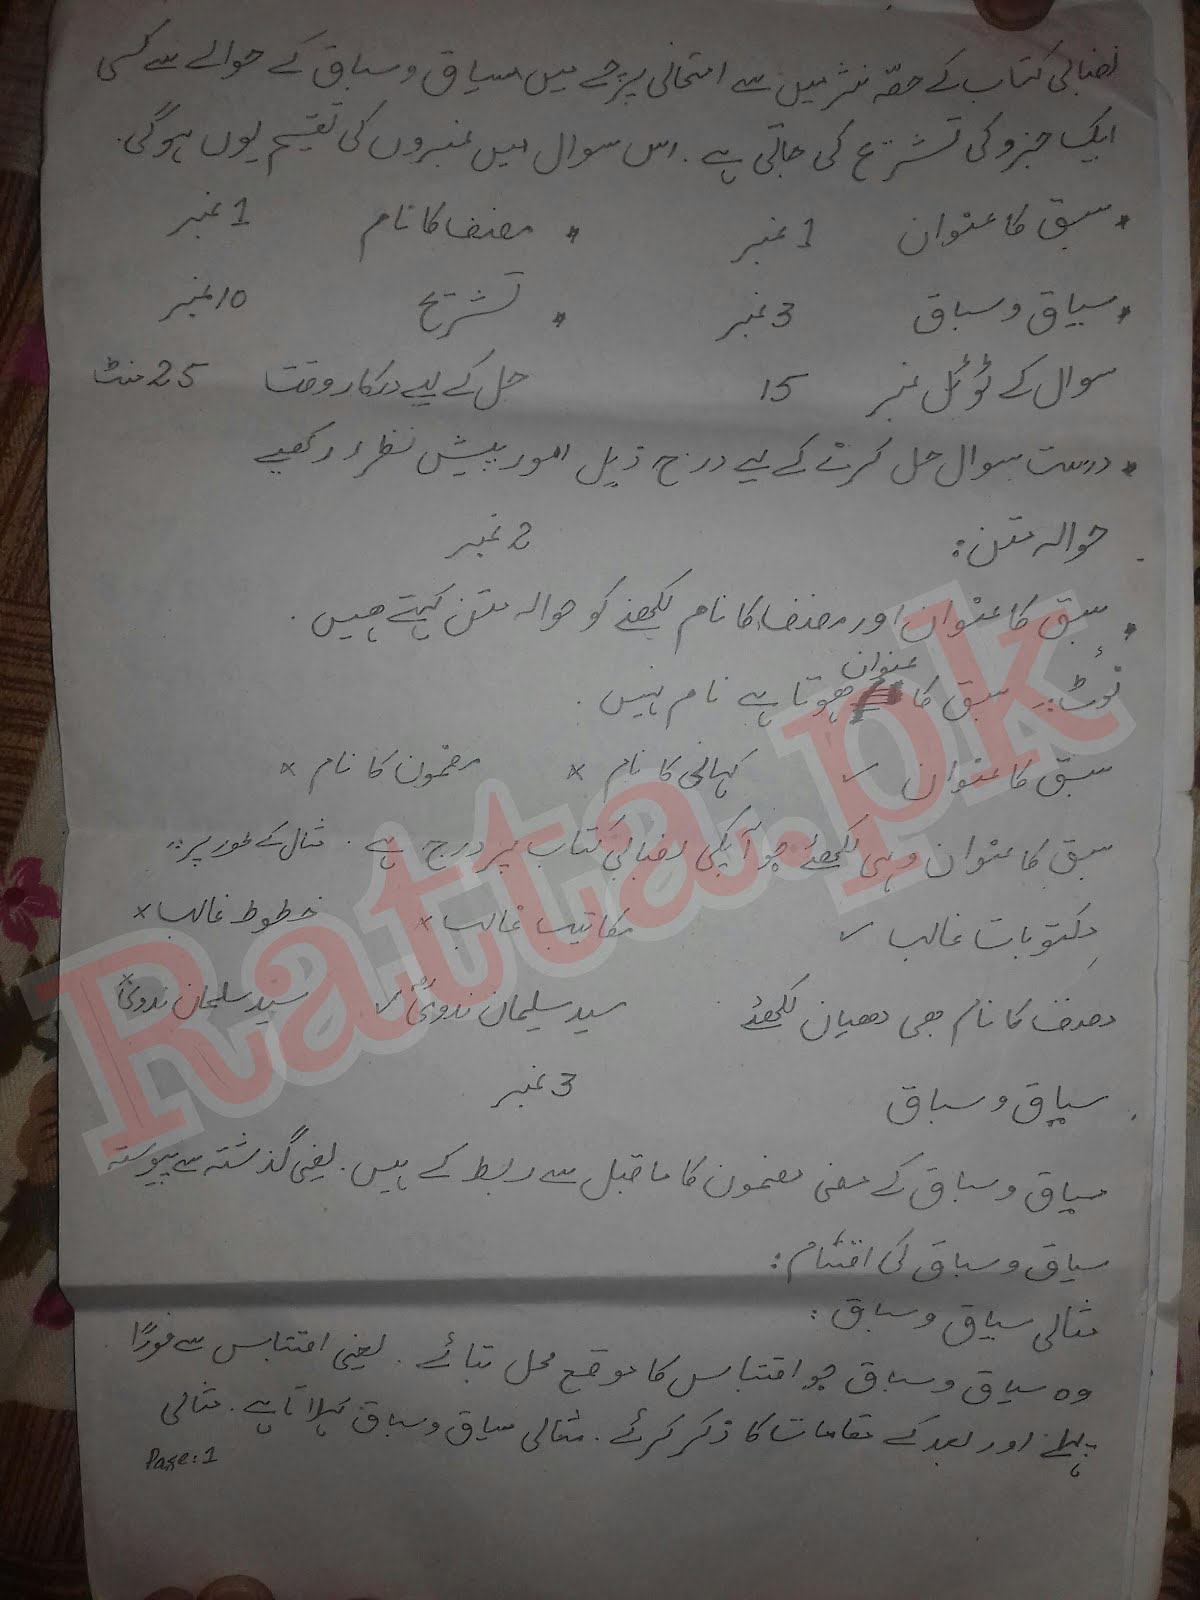 نصابی کتاب کے حصّہ نثر میں سے امتحانی پرچے میں سیاق و سباق کے حوالے سے کسی
ایک جزو کی تشریح کی جاتی ہے۔ اس سوال میں نمبروں کی تقسیم یوں ہوگی۔
* سبق کا عنوان 1 نمبر * مصنف کا نام 1 نمبر
* سیاق و سباق 3 نمبر * تشریح 10 نمبر
سوال کے ٹوٹل نمبر 15 حل کے لیے درکار وقت 25 منٹ
* درست سوال حل کرنے کے لیے درج ذیل امور پیش نظر رکھیے
حوالہ متن: 2 نمبر
* سبق کا عنوان اور مصنف کا نام لکھنے کو حوالہ متن کہتے ہیں۔
نوٹ:۔ سبق کا عنوان ہوتا ہے نام نہیں۔
سبق کا عنوان ✓ کہانی کا نام × مضمون کا نام ×
سبق کا عنوان وہی لکھئے جو آپکی نصابی کتاب پر درج ہے۔ مثال کے طور پر:۔
مکتوبات غالب ✓ مکاتیب غالب × خطوط غالب ×
مصنف کا نام بھی دھیان لکھئے سید سلیمان ندویؒ ✓ سید سلمان ندوی ×
سیاق و سباق 3 نمبر
سیاق و سباق کے معنی مضمون کا ماقبل سے ربط کے ہیں۔ یعنی گذشتہ سے پیوستہ
سیاق و سباق کی اقسام:
مثالی سیاق و سباق:
وہ سیاق و سباق جو اقتباس کا موقع محل بتائے۔ یعنی اقتباس سے فوراً
پہلے اور بعد کے مقامات کا ذکر کرئے۔ مثالی سیاق و سباق کہلاتا ہے۔ مثالی
Page:1
Ratta.pk